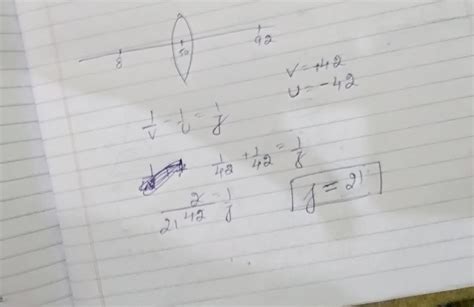 8 50 92
v = +42
u = -42
1/v - 1/u = 1/f
1/42 + 1/42 = 1/f
2/42 = 1/f
21
f = 21